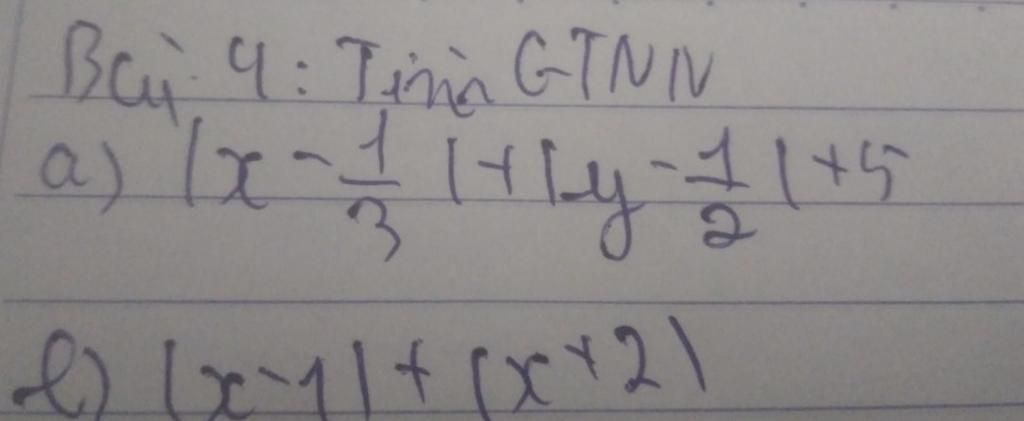 Bài 4: Tính GTNN
a) |x - 1/3| + |y - 1/2| + 5
b) |x - 1| + |x + 2|